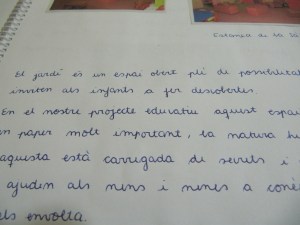 Estança de la
El jardí és un espai obert ple de possibilitat
inviten als infants a fer descobertes.
En el nostre projecte educatiu aquest espai
un paper molt important, la natura
aquesta està carregada de
ajuden als nens i nenes a
els envolta.